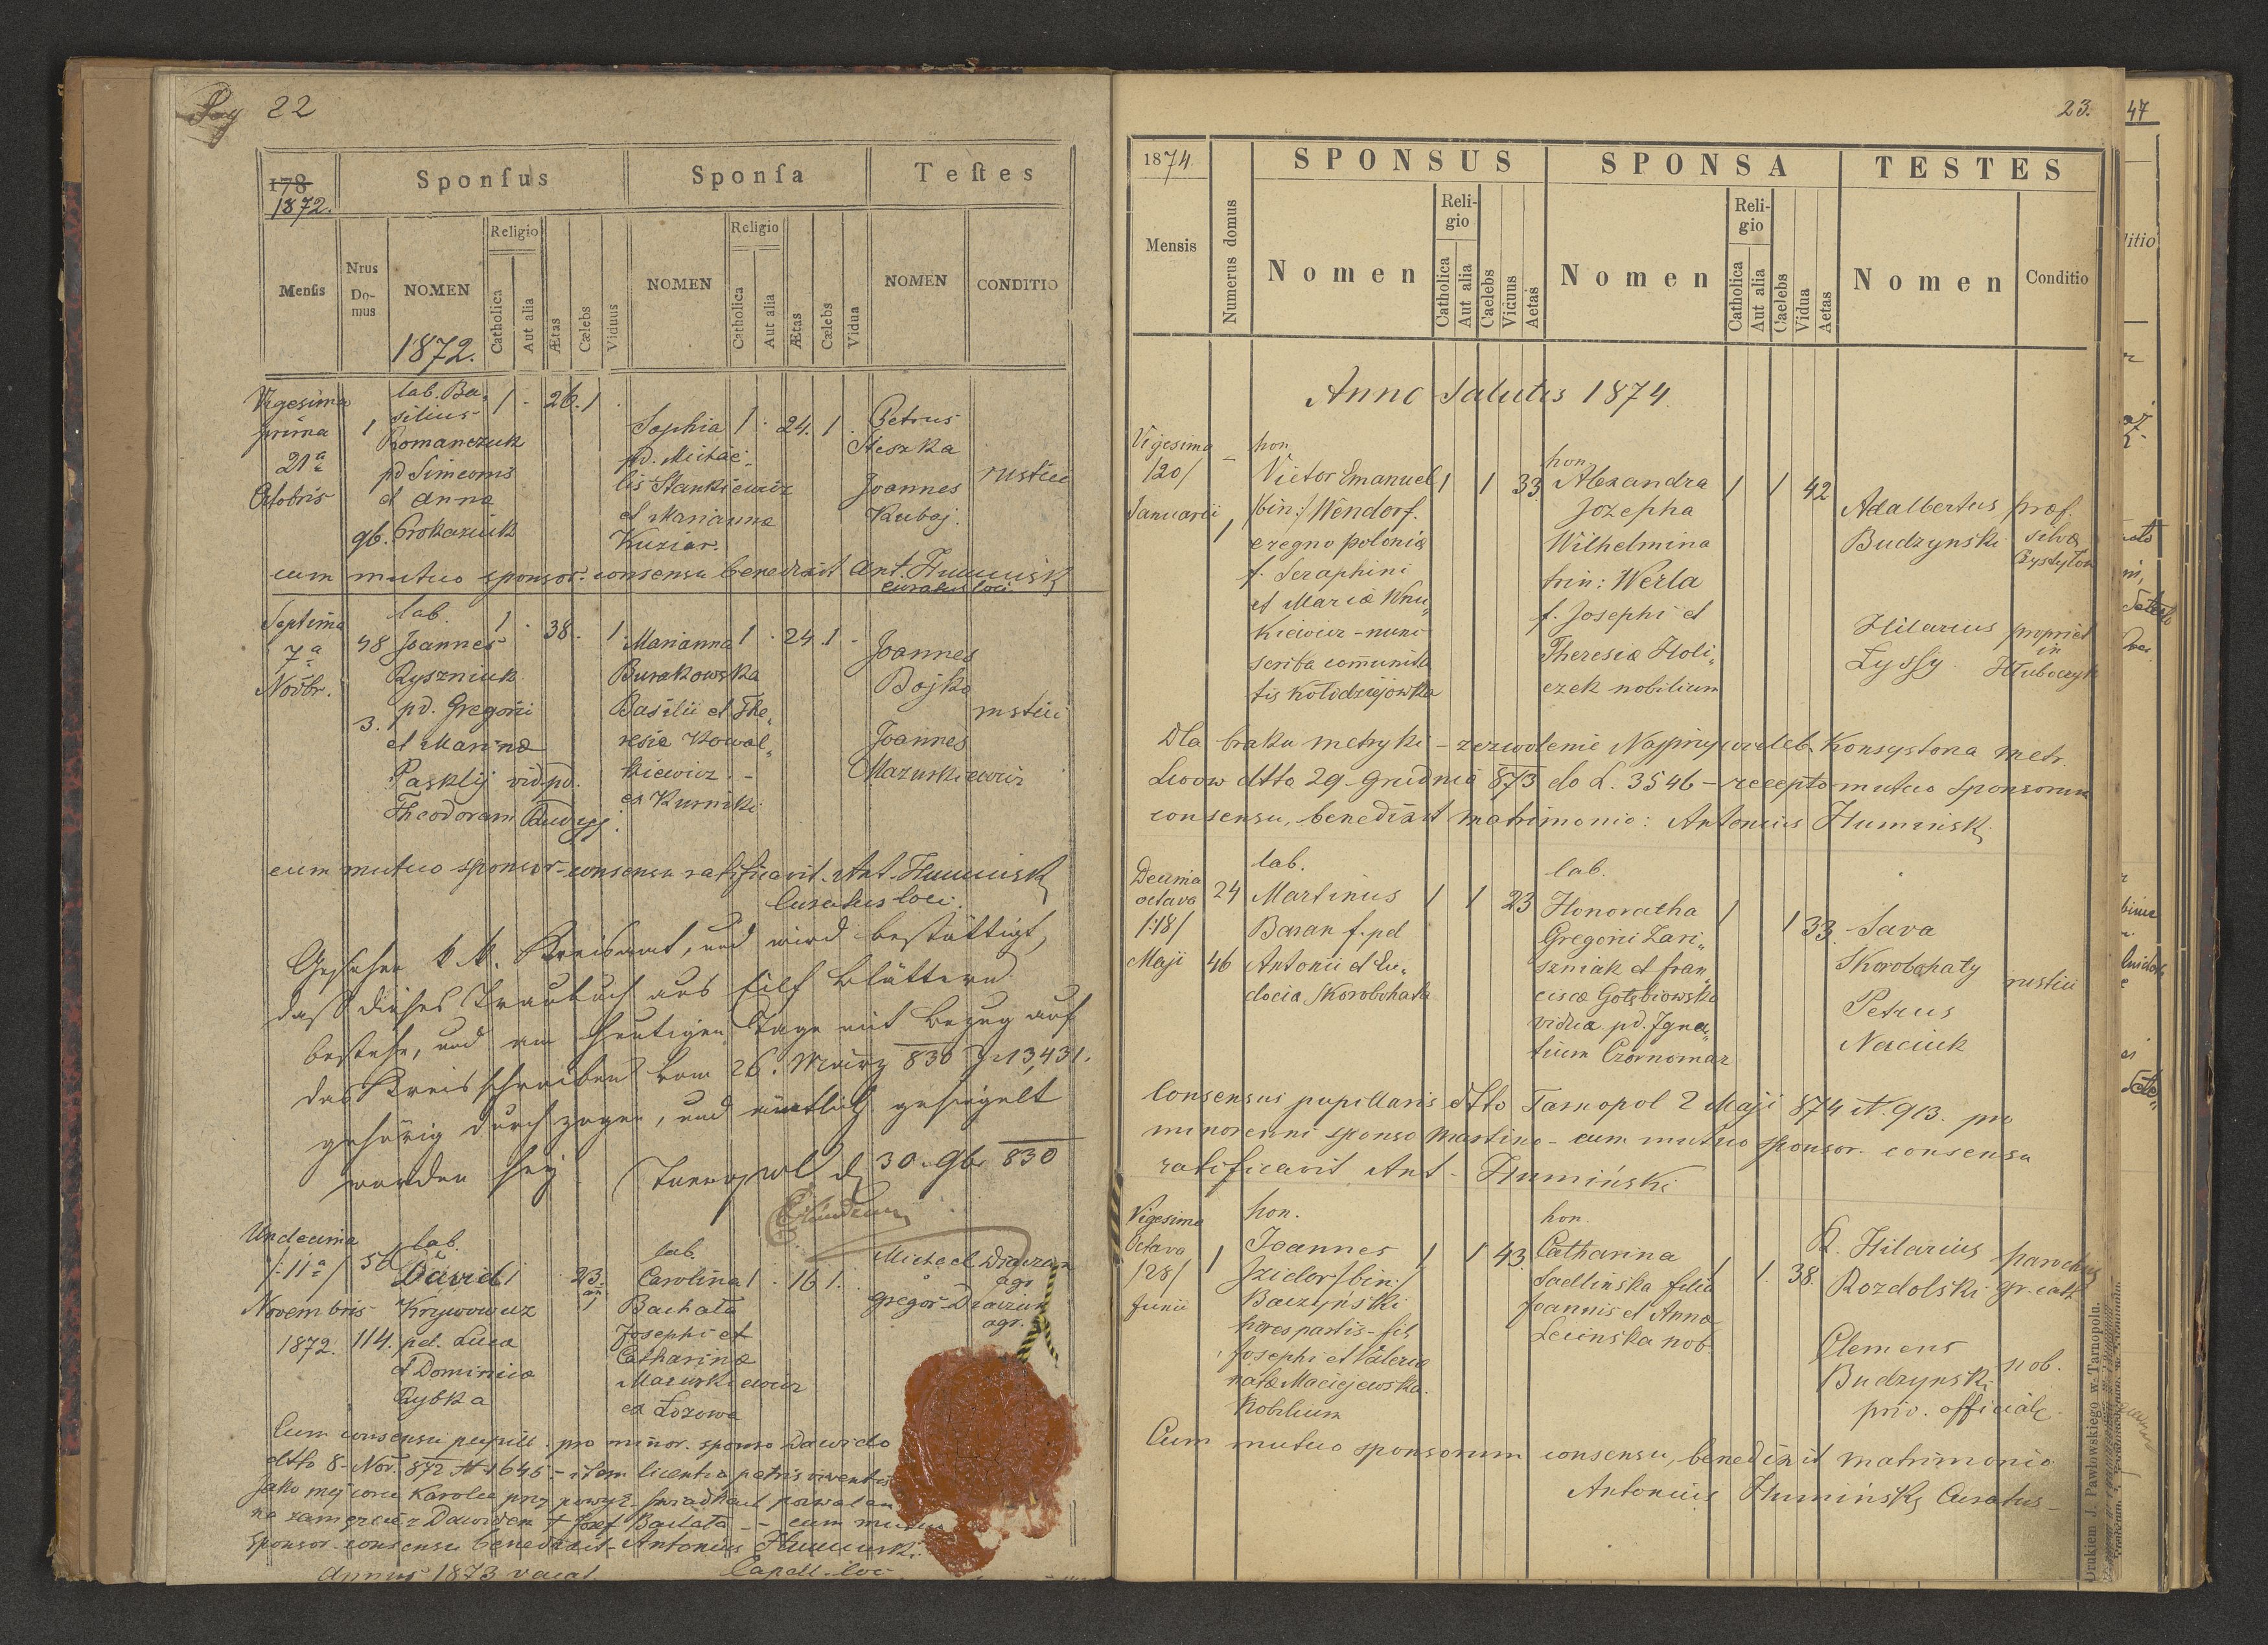 Pag 22
178
1872.
Sponsus
Sponsa
Testes
Mensis
Nrus Do-mus
NOMEN
1872.
Religio
Catholica
Aut alia
Ætas
Cælebs
Viduus
NOMEN
Religio
Catholica
Aut alia
Ætas
Cælebs
Vidua
NOMEN
CONDITIO
Vigesima
prima
21ª
Octobris
1
96.
lab. Ba-
silius
Romanczuk
pd Simeonis
et Anna
Prokaziuk
1 - 26. 1
Sophia 1 - 24. 1.
pd. Michae-
lis Stankiewicz
et Marianna
Kuziar.
Petrus
Steszka
Joannes
Kuboj.
rustici
cum mutuo sponsor. consensu benedixit Ant. Humiński
curatus loci.
Septima
7ª
Novbr.
48
3.
lab.
Joannes
Ryszniuk
pd. Gregorii
et Marina
Pasklij vid. pd.
Theodoram
1 - 38. 1.
Marianna 1 - 24. 1 -
Burakowska
Basilii et The„
resia Kowal„
kiewicz. -
ex Kurniki
Joannes
Bojko
Joannes
Mazurkiewicz
rustici
cum mutuo sponsor consensu ratificavit Ant. Humiński
Curatus loci.
Gesehen k. k. Kreisamt, und wird bestättigt,
daß dieses Traubuch aus eilf Blättern
bestehe, und am heutigen Tage mit Bezug auf
das Kreisschreiben vom 26. März 830 Z. 13,431.
gehörig durchzogen, und ämtlich gesiegelt
worden sey Tarnopol d 30. 9b. 830
Undecima
/:11ª/
Novembris
1872.
56
114.
lab.
David
Krzywowicz
pd. Luca
et Dominica
Rybka
1 23. 1
lab.
Carolina 1 - 16 1.
Bachata
Josephi et
Catharina
Mazurkiewicz
ex Łozowa
Michael
agr
Gregor
agr.
Cum consensu pupill. pro minor. sponso Dawido
dtto 8. Nov. 872 N 1645 - item licentia patris viventis
Jako mej corce Karolce przy powyż. swiadkach pozwalam
na zamęzcie z Dawidem + Jozef Bachata - cum mutuo
sponsor. consensu benedixit Antonius Humiński
Capell. loci
Annus 1873 vacat
23.
1874.
SPONSUS
SPONSA
TESTES
Mensis
Numerus domus
Nomen
Reli-gio
Catholica
Aut alia
Caelebs
Viduus
Aetas
Nomen
Reli-gio
Catholica
Aut alia
Caelebs
Vidua
Aetas
Nomen
Conditio
Anno Salutis 1874.
Vigesima
/20/
Januarii
-
1
hon.
Victor Emanuel
/bin:/ Wendorf.
e regno polonia
f. Seraphini
et Maria Wnu„
kiewicz - nunc
scriba comunita
tis Kołodziejowka
1 1 33.
hon.
Alexandra
Jozepha
Wilhelmina
trin: Werla
f. Josephi et
Theresia Holi„
czek nobilium
1 1 42
Adalbertus
Budzynski
præf.
silvæ
Hilarius
Łyssy
propriet
in
Hluboczyk
Dla braku metryki - zezwolenie Najprzyweleb. Konsystorza metr.
Lwow dtto 29. Grudnia 873 do L. 3546 - recepto mutuo sponsorum
consensu, benedixit matrimonio: Antonius Humiński
Decima
octava
/:18/
Maji
24
46
lab.
Martinus
Baran f. pd
Antonii et Eu„
docia Skorobohata
1 1 23
lab.
Honoratha
Gregorii Zari„
szniak et fran„
cisca Gołębiowska
vidua pd. Igna„
tium Czornomaz
1 1 33.
Sava
Skorobohaty
Petrus
Naciuk
rustici
Consensus pupillaris dtto Tarnopol 2 Maji 874 N. 913. pro
minorenni sponso Martino - cum mutuo sponsor. consensu
ratificavit Ant. Humiński
Vigesima
Octava
/28/
Junii
1
hon.
Joannes
Izidor /bin:/
Baczyński
hæres partis - fil.
Josephi et Valeria
nata Maciejewska.
Nobilium
1 1 43.
hon.
Catharina
Sadlińska filia
Joannis et Anna
Lecinska nob.
1 1. 38.
R. Hilarius
Rozdolski
parochus
gr. cath
Clemens
Budzynski
nob.
priv. officiale
Cum mutuo sponsorum consensu, benedixit matrimonio
Antonius Humiński Curatus
Drukiem J. Pawłowskiego w Tarnopolu.
47